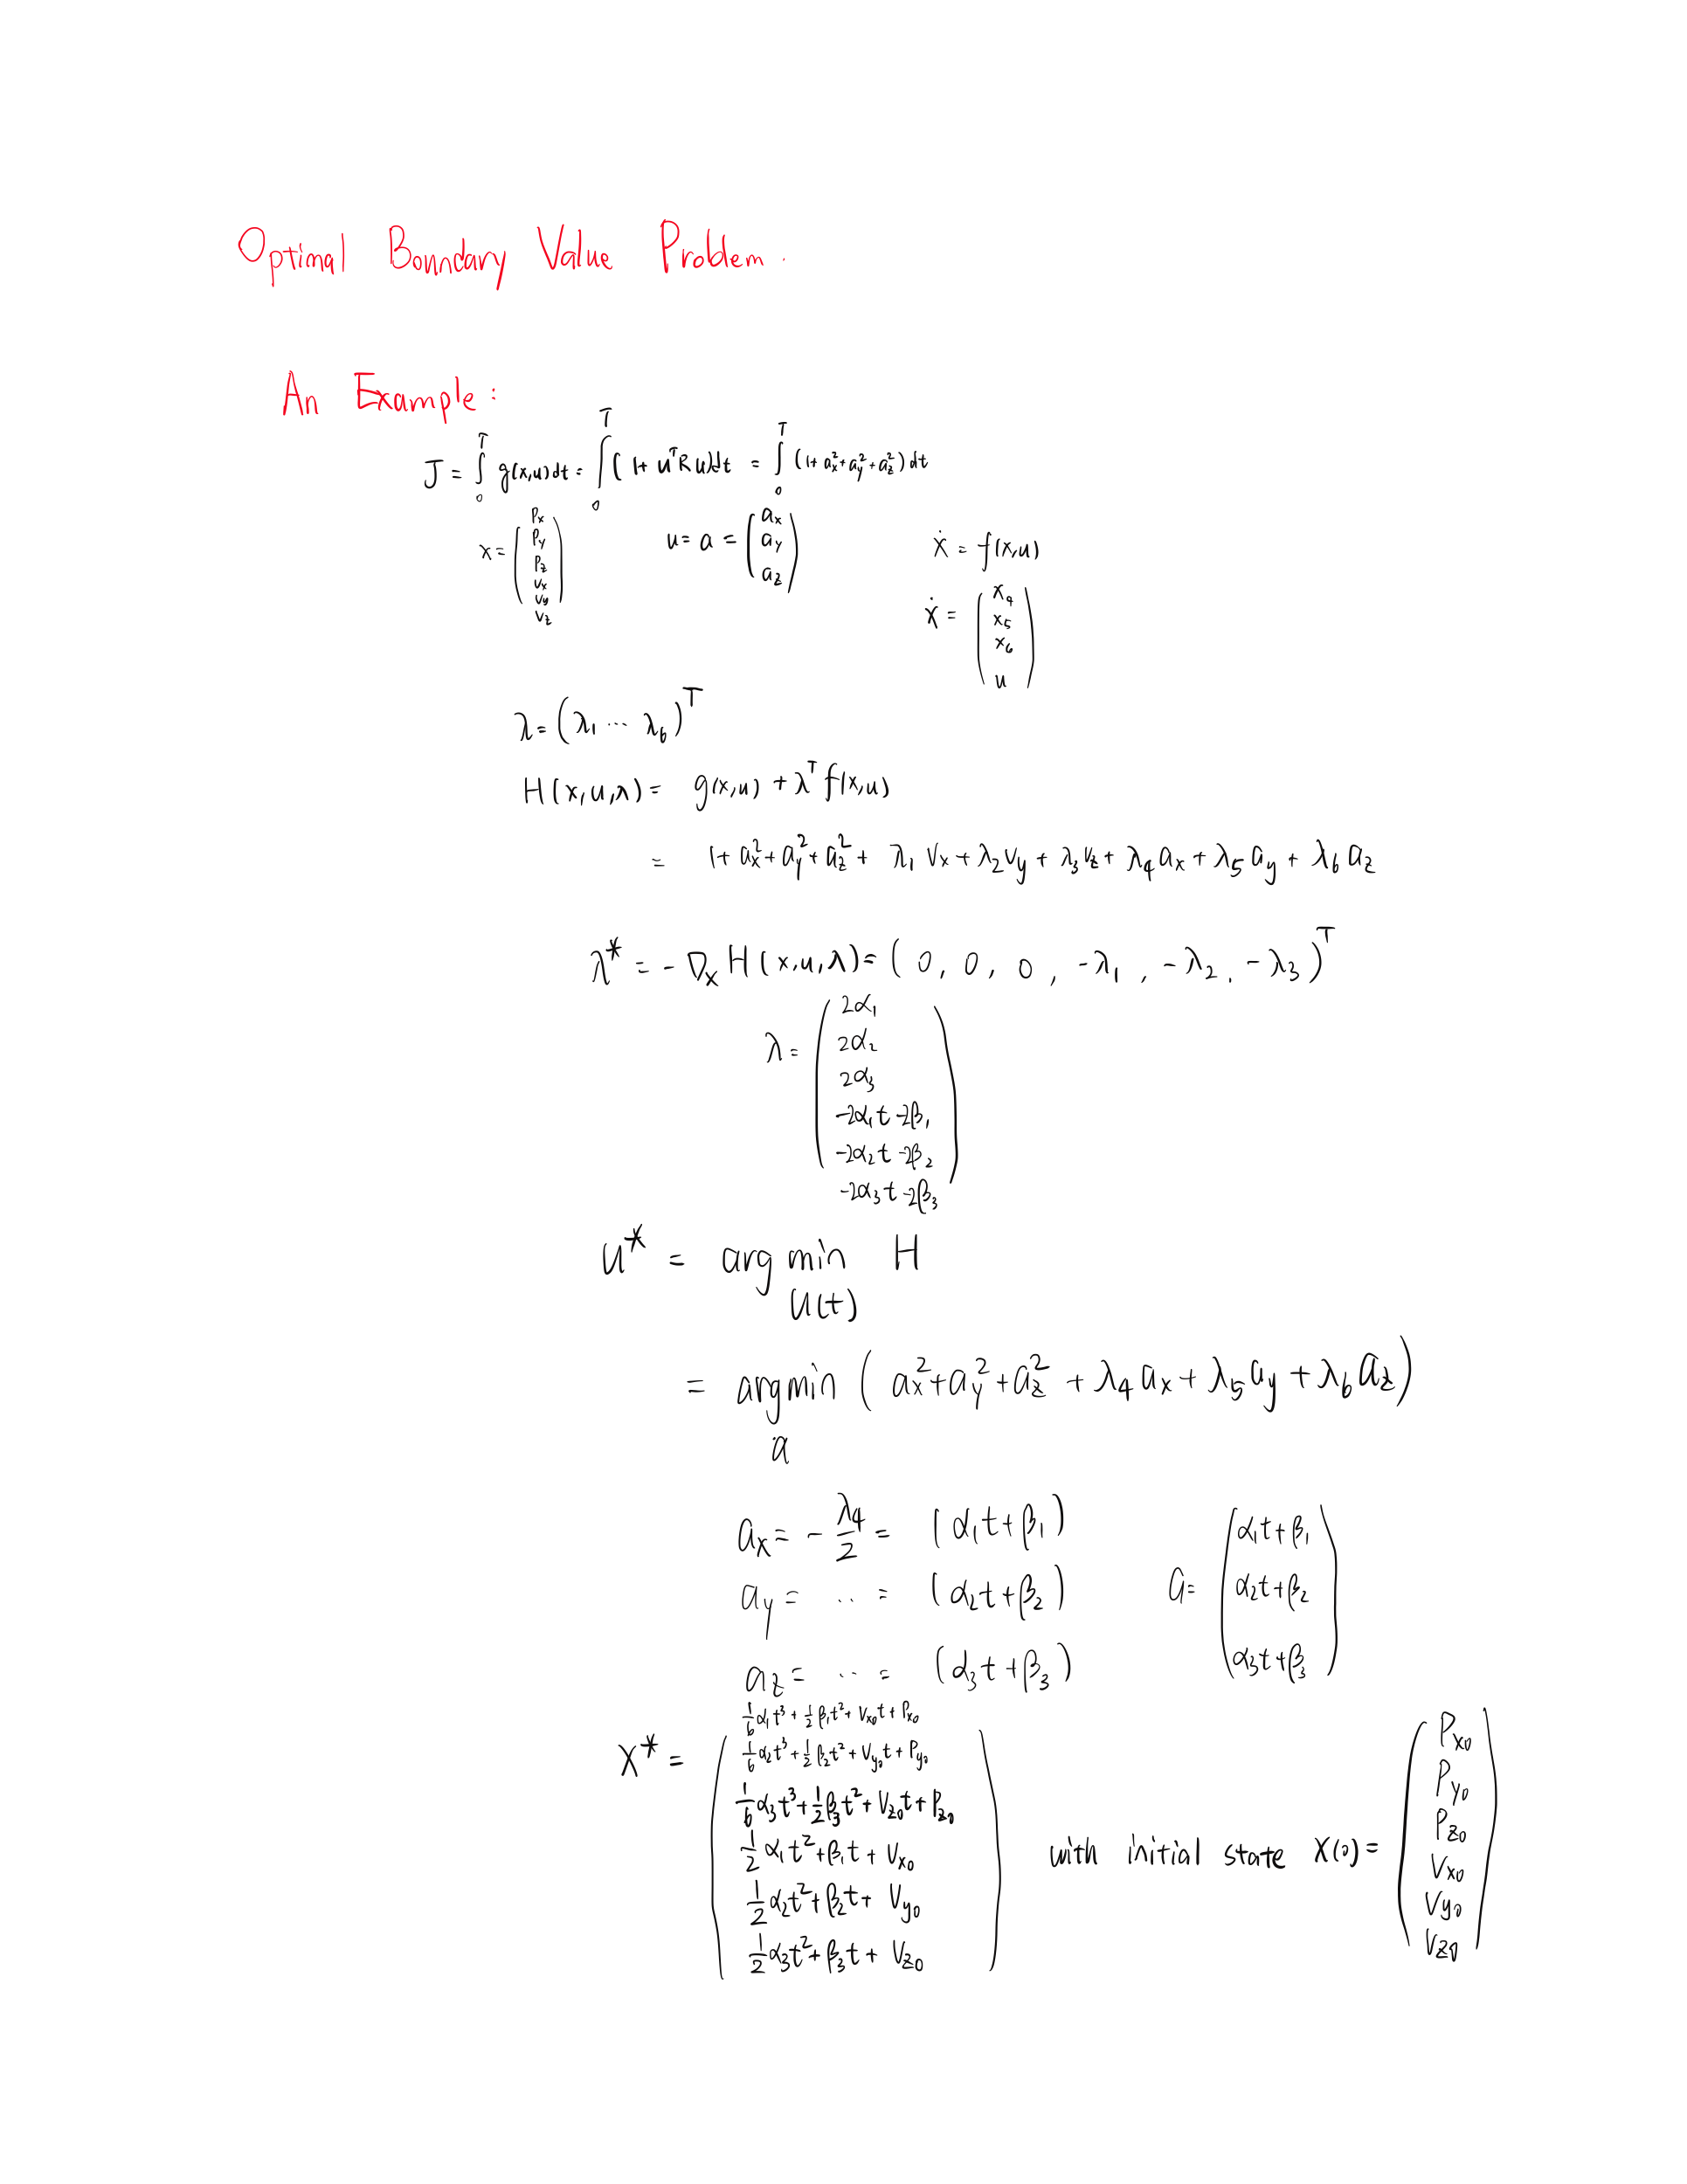 Optimal Boundary Value Problem.
An Example:
J = ∫₀ᵀ g(x,u)dt = ∫₀ᵀ (1+ uᵀRu)dt = ∫₀ᵀ (1+ a_x²+a_y²+a_z²) dt
x = (P_x P_y P_z v_x v_y v_z) u = a = (a_x a_y a_z) ẋ = f(x,u)
ẋ = (x₄ x₅ x₆ u)
λ = (λ₁ ··· λ₆)ᵀ
H(x,u,λ) = g(x,u) + λᵀ f(x,u)
= 1+ a_x²+a_y²+a_z² + λ₁ v_x + λ₂ v_y + λ₃ v_z + λ₄ a_x + λ₅ a_y + λ₆ a_z
λ* = - ∇ₓ H(x,u,λ) = (0, 0, 0, -λ₁, -λ₂, -λ₃)ᵀ
λ = (2α₁
2α₂
2α₃
-2α₁t -2β₁
-2α₂t -2β₂
-2α₃t -2β₃)
u* = arg min H
u(t)
= argmin ( a_x²+a_y²+a_z² + λ₄ a_x + λ₅ a_y + λ₆ a_z )
a
a_x = - λ₄/2 = (α₁t+β₁)
a_y = ·· = (α₂t+β₂) a = (α₁t+β₁ α₂t+β₂ α₃t+β₃)
a_z = ·· = (α₃t+β₃)
x* = (1/6 α₁t³ + 1/2 β₁t² + V_x0 t + P_x0
1/6 α₂t³ + 1/2 β₂t² + V_y0 t + P_y0
1/6 α₃t³ + 1/2 β₃t² + V_z0 t + P_z0
1/2 α₁t² + β₁t + V_x0
1/2 α₂t² + β₂t + V_y0
1/2 α₃t² + β₃t + V_z0)
with initial state X(0) = (P_x0 P_y0 P_z0 V_x0 V_y0 V_z0)